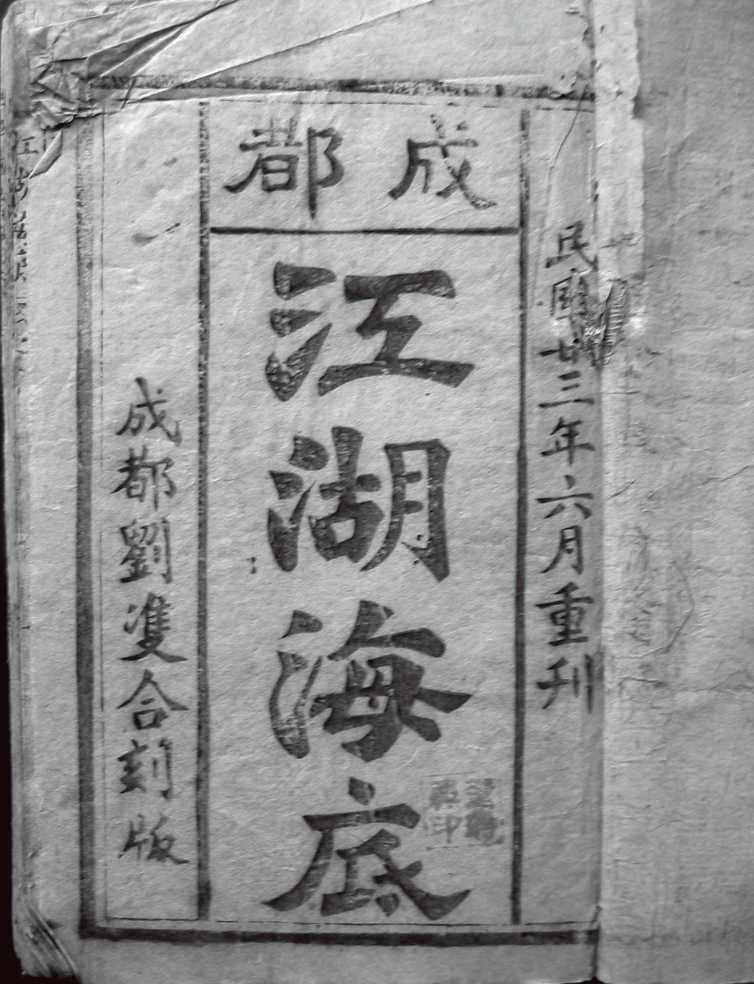 民國廿三年六月重刊
成都
江湖海底
成都劉雙合刻版